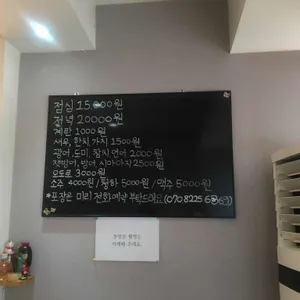 점심 15000원
저녁 20000원
계란 1000원
새우, 한치 가지 1500원
광어, 도미, 참치 연어 2000원
장어, 시마아지 2500원
모도로 3000원
소주 4000원 / 청하 5000원 / 맥주 5000원
*포장은 미리 전화예약 부탁드려요